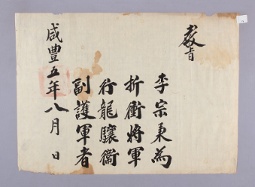 敎旨
李宗秉爲
折衝將軍
行龍驤衛
副護軍者
咸豐五年八月 日